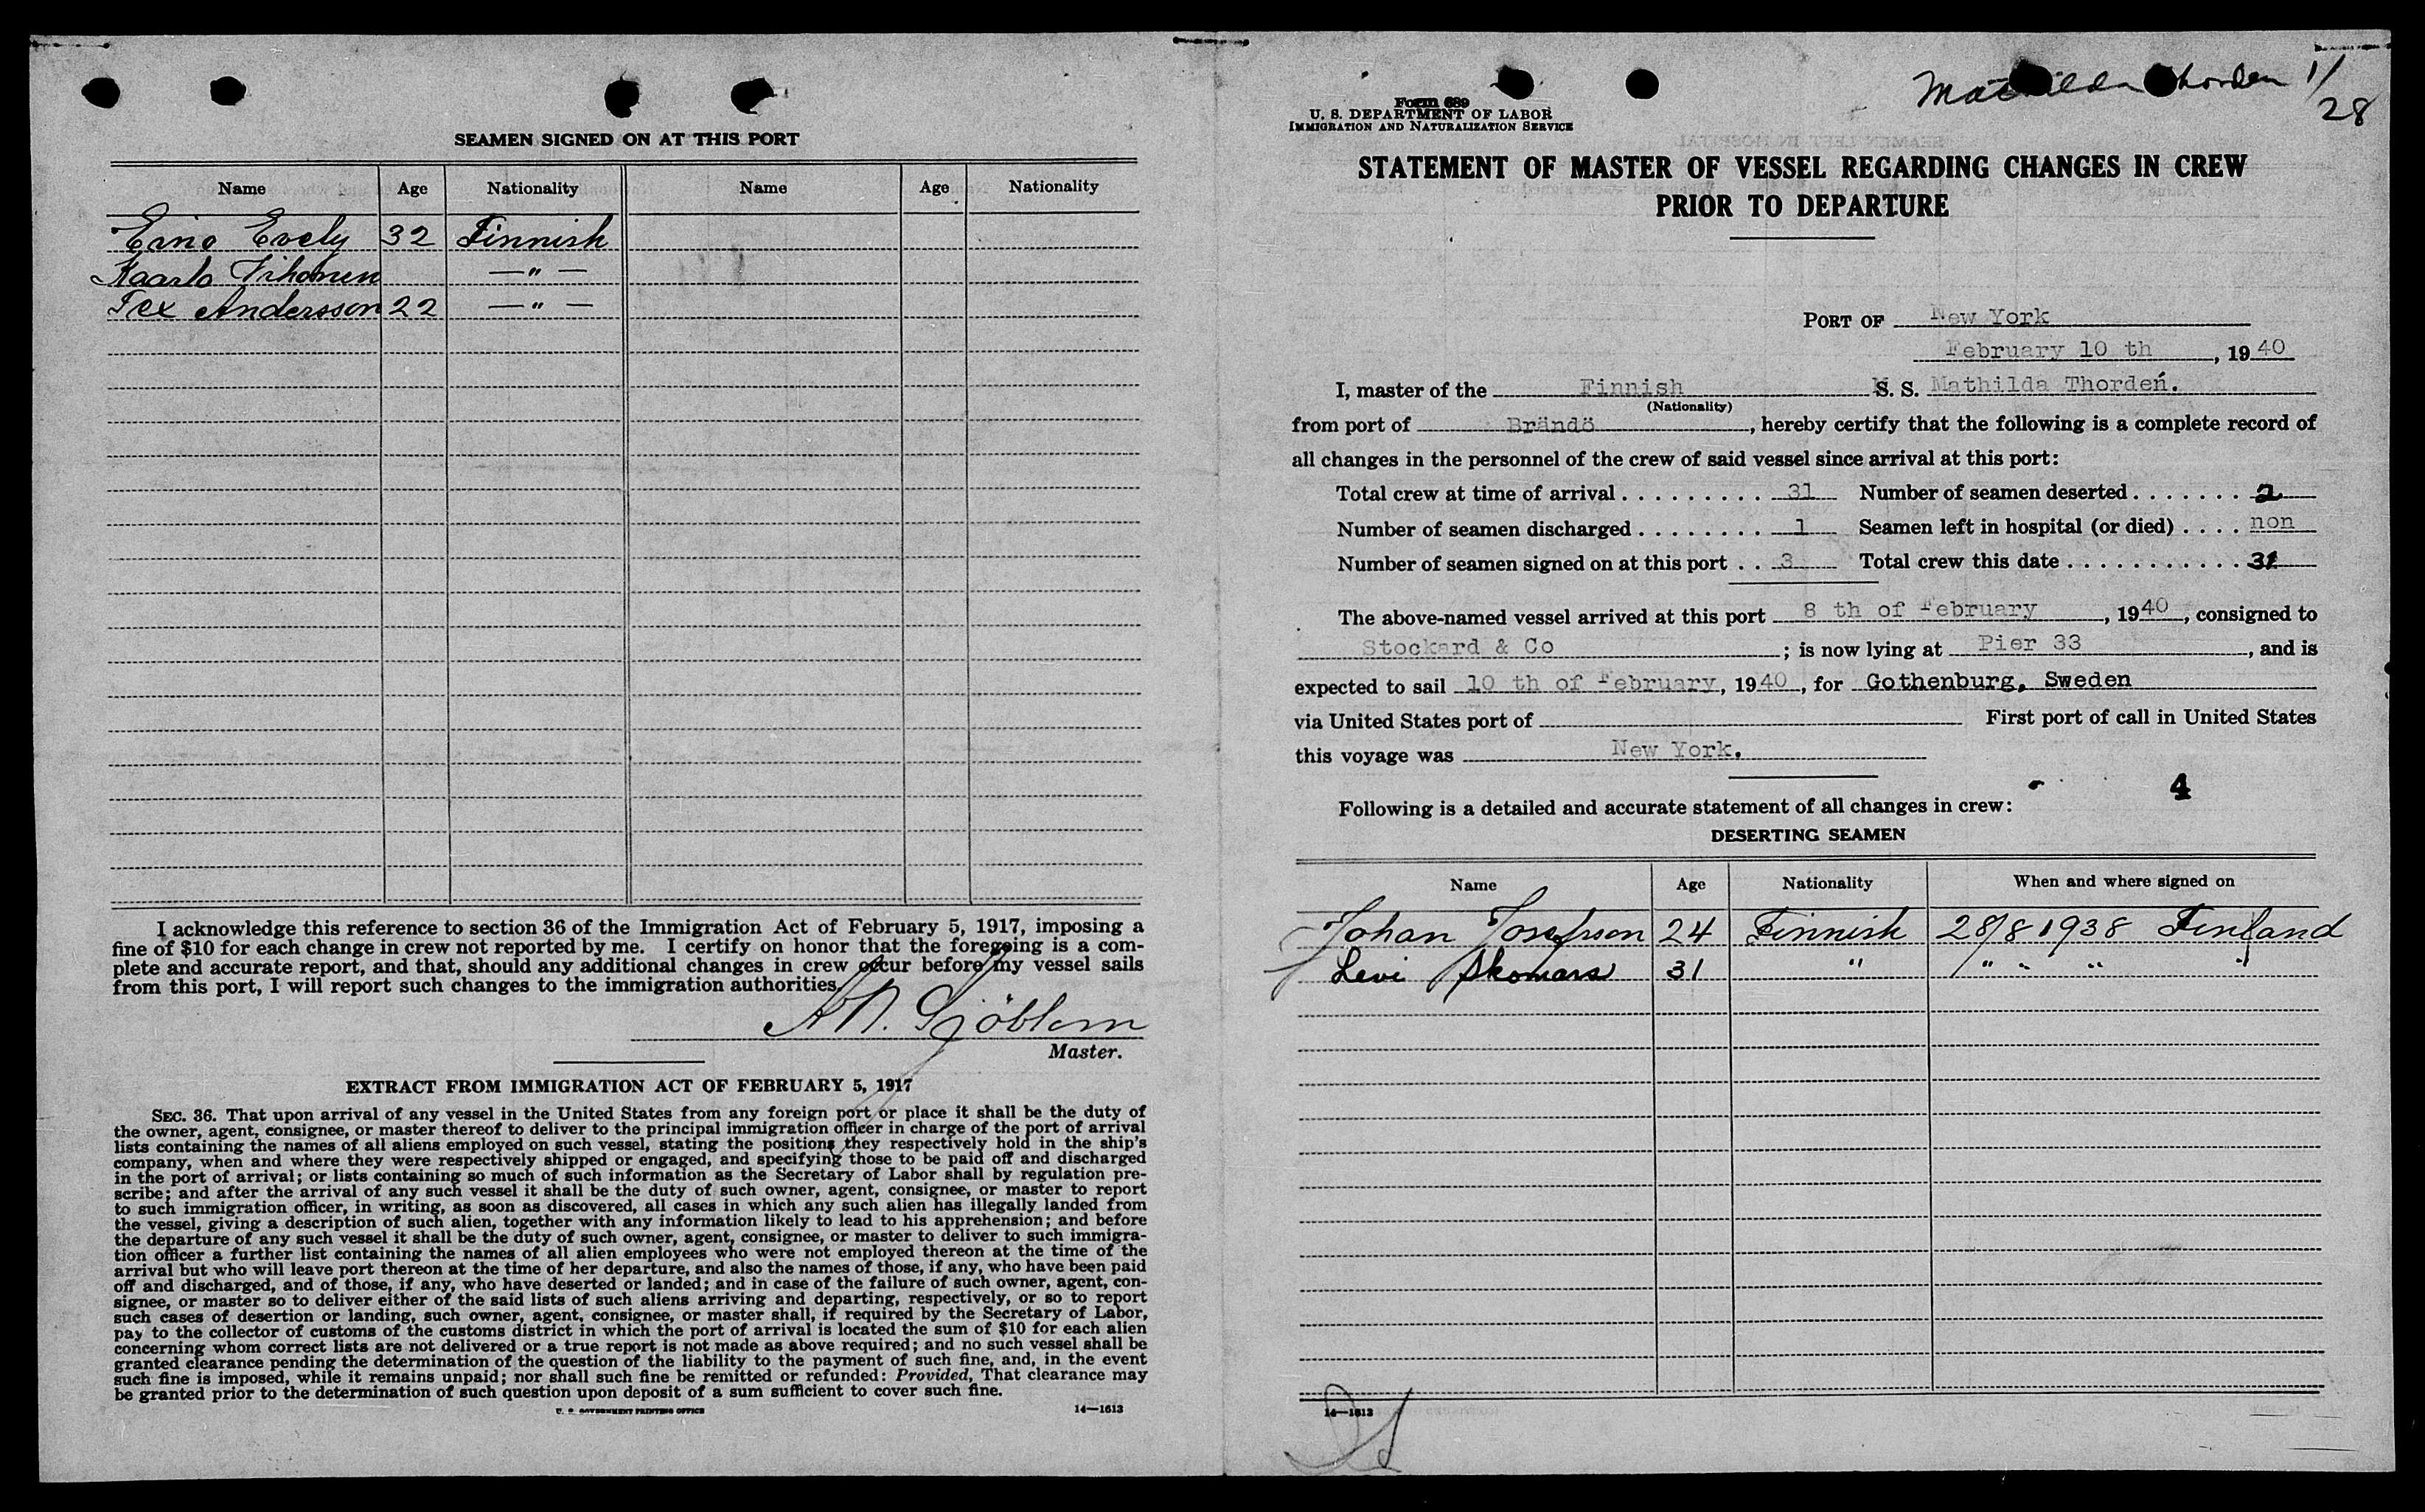 SEAMEN SIGNED ON AT THIS PORT
Name Age Nationality Name Age Nationality
Eino Evely 32 Finnish
Kaarlo Vihonen — " —
Tex Andersson 22 — " —
I acknowledge this reference to section 36 of the Immigration Act of February 5, 1917, imposing a
fine of $10 for each change in crew not reported by me. I certify on honor that the foregoing is a com-
plete and accurate report, and that, should any additional changes in crew occur before my vessel sails
from this port, I will report such changes to the immigration authorities.
Master.
EXTRACT FROM IMMIGRATION ACT OF FEBRUARY 5, 1917
SEC. 36. That upon arrival of any vessel in the United States from any foreign port or place it shall be the duty of
the owner, agent, consignee, or master thereof to deliver to the principal immigration officer in charge of the port of arrival
lists containing the names of all aliens employed on such vessel, stating the positions they respectively hold in the ship's
company, when and where they were respectively shipped or engaged, and specifying those to be paid off and discharged
in the port of arrival; or lists containing so much of such information as the Secretary of Labor shall by regulation pre-
scribe; and after the arrival of any such vessel it shall be the duty of such owner, agent, consignee, or master to report
to such immigration officer, in writing, as soon as discovered, all cases in which any such alien has illegally landed from
the vessel, giving a description of such alien, together with any information likely to lead to his apprehension; and before
the departure of any such vessel it shall be the duty of such owner, agent, consignee, or master to deliver to such immigra-
tion officer a further list containing the names of all alien employees who were not employed thereon at the time of the
arrival but who will leave port thereon at the time of her departure, and also the names of those, if any, who have been paid
off and discharged, and of those, if any, who have deserted or landed; and in case of the failure of such owner, agent, con-
signee, or master so to deliver either of the said lists of such aliens arriving and departing, respectively, or so to report
such cases of desertion or landing, such owner, agent, consignee, or master shall, if required by the Secretary of Labor,
pay to the collector of customs of the customs district in which the port of arrival is located the sum of $10 for each alien
concerning whom correct lists are not delivered or a true report is not made as above required; and no such vessel shall be
granted clearance pending the determination of the question of the liability to the payment of such fine, and, in the event
such fine is imposed, while it remains unpaid; nor shall such fine be remitted or refunded: Provided, That clearance may
be granted prior to the determination of such question upon deposit of a sum sufficient to cover such fine.
U. S. GOVERNMENT PRINTING OFFICE 14—1613
Mathilda Thorden 1/28
Form 689
U. S. DEPARTMENT OF LABOR
IMMIGRATION AND NATURALIZATION SERVICE
STATEMENT OF MASTER OF VESSEL REGARDING CHANGES IN CREW
PRIOR TO DEPARTURE
PORT OF New York
February 10 th, 1940
I, master of the Finnish S. S. Mathilda Thordén.
(Nationality)
from port of Brändö, hereby certify that the following is a complete record of
all changes in the personnel of the crew of said vessel since arrival at this port:
Total crew at time of arrival . . . . . . . . . 31 Number of seamen deserted . . . . . . . 2
Number of seamen discharged . . . . . . . . 1 Seamen left in hospital (or died) . . . . non
Number of seamen signed on at this port . . 3 Total crew this date . . . . . . . . . . . . 31
The above-named vessel arrived at this port 8 th of February, 1940, consigned to
Stockard & Co; is now lying at Pier 33, and is
expected to sail 10 th of February, 1940, for Gothenburg, Sweden
via United States port of First port of call in United States
this voyage was New York.
4
Following is a detailed and accurate statement of all changes in crew:
DESERTING SEAMEN
Name Age Nationality When and where signed on
Johan Josefsson 24 Finnish 28/8 1938 Finland
Levi Skomars 31 " " " " "
14—1613